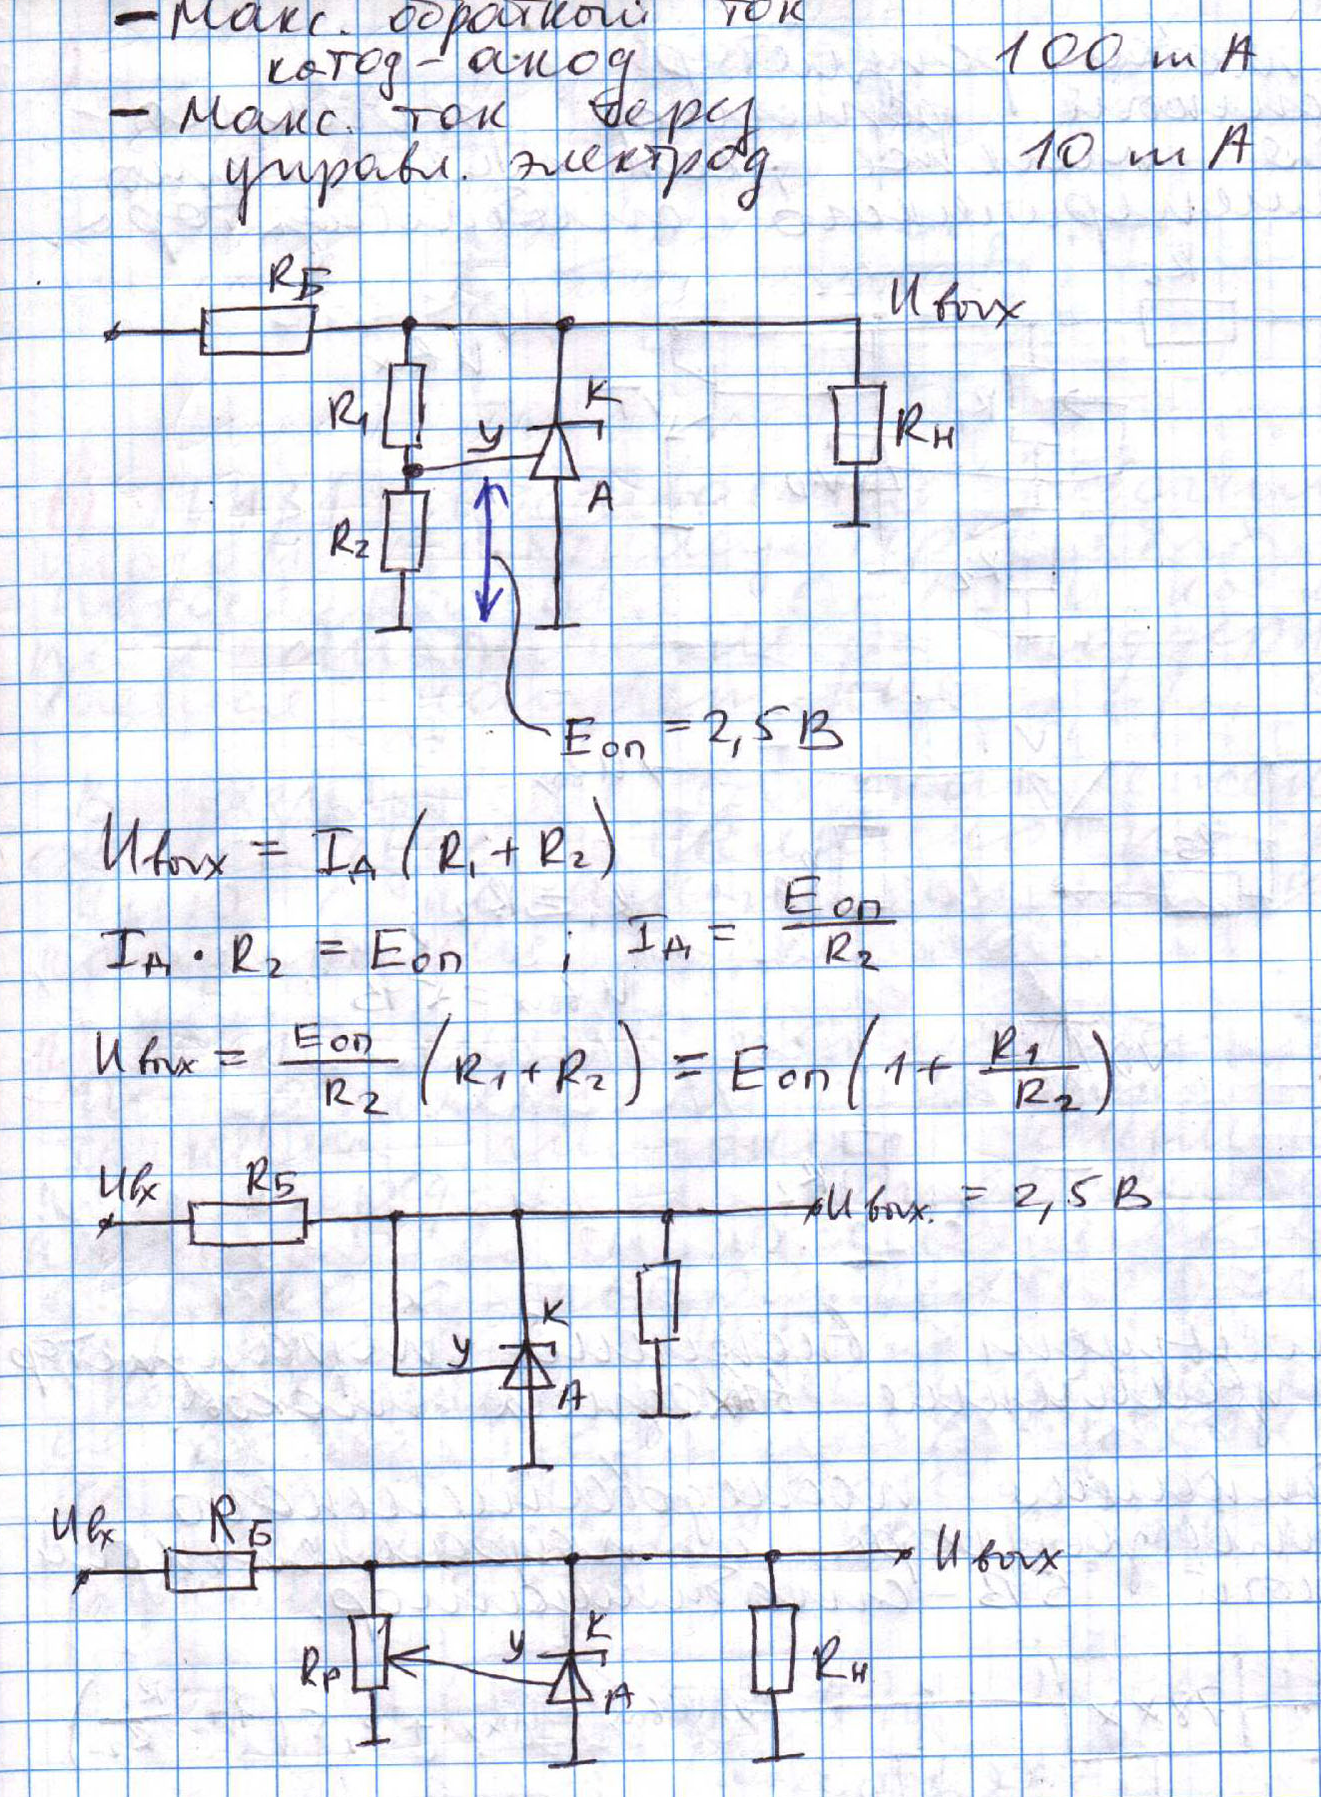 — Макс. обратный ток
катод-анод 100 mA
— Макс. ток через
управл. электрод. 10 mA
RБ
Uвых
R1
У
К
RН
А
R2
Eоп = 2,5 В
Uвых = Iд (R1 + R2)
Iд · R2 = Eоп ; Iд = Eоп / R2
Uвых = Eоп / R2 (R1 + R2) = Eоп (1 + R1 / R2)
Uвх RБ Uвых. = 2,5 В
К
У
А
Uвх RБ Uвых
Rр У К RН
А